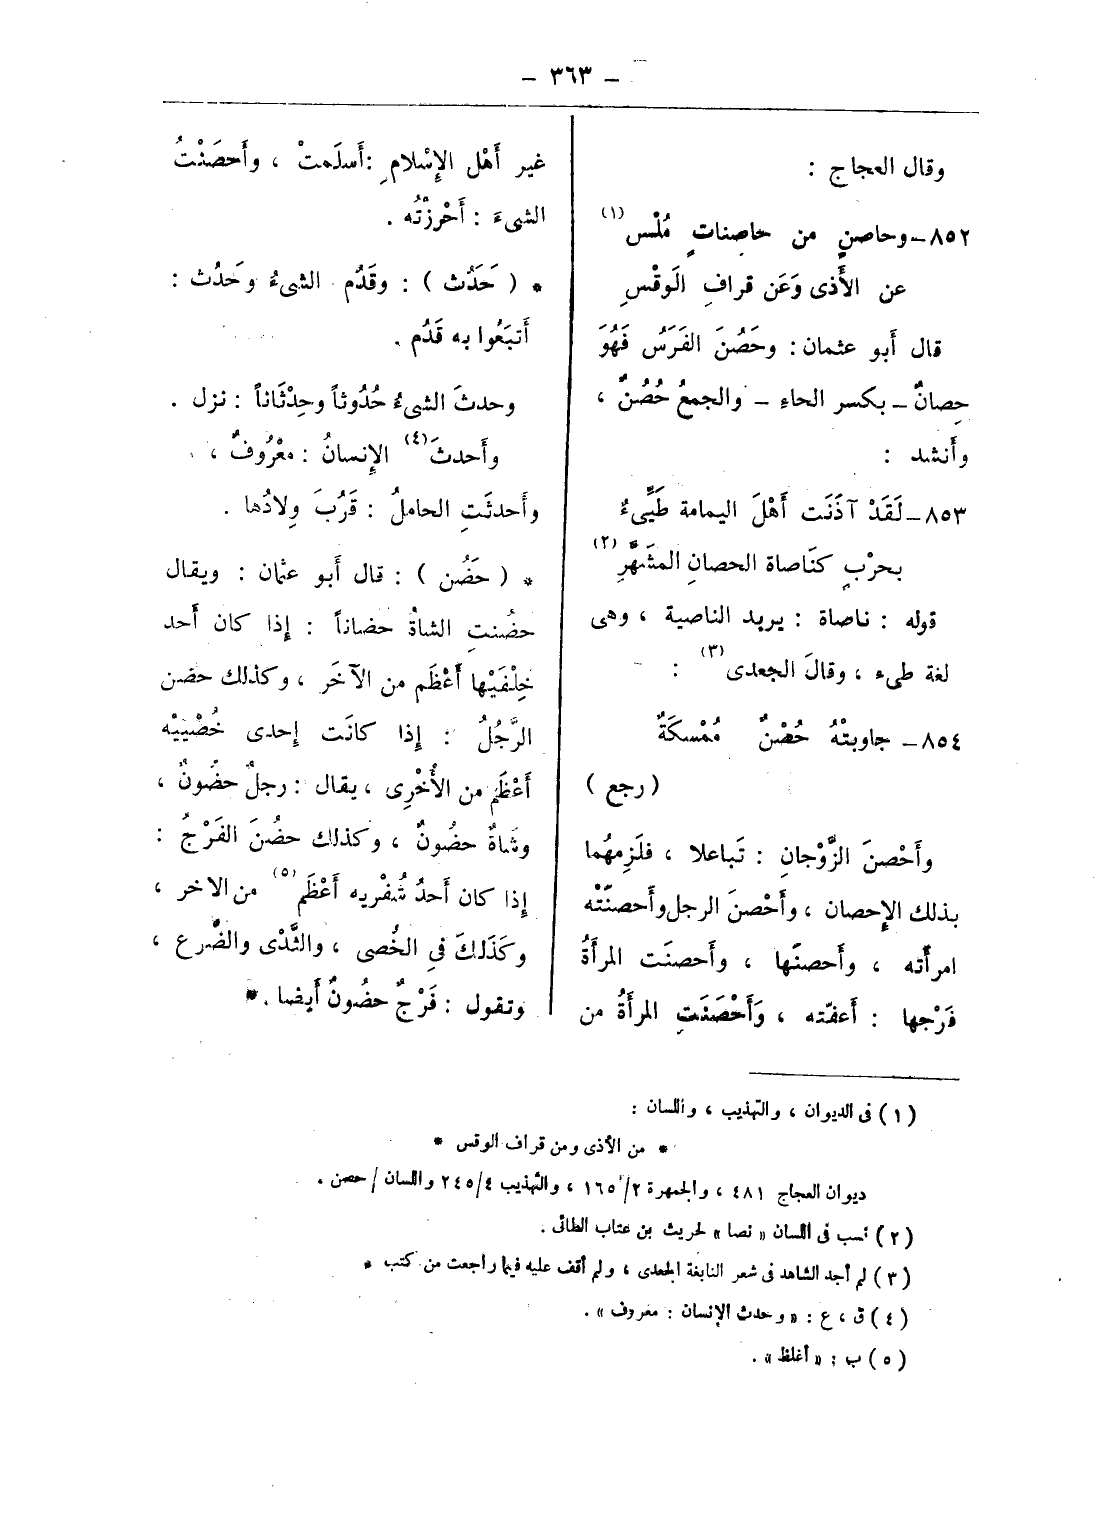 – ٣٦٣ –
وقال العجاج :
٨٥٢– وحاصنٍ من حاصِناتٍ مُلْس (١)
عن الأَذى وَعَن قرافِ الوَقْسِ
قال أَبو عثمان : وحَصُنَ الفَرَسُ فَهُوَ
حِصانٌ – بكسر الحاءِ – والجمعُ حُصُنٌ ،
وأَنشد :
٨٥٣– لَقَدْ آذَنَت أَهْلَ اليمامة طَيِّىءُ
بحرْبٍ كنَاصاة الحصانِ المشَهَّرِ (٢)
قوله : ناصاة : يريد الناصية ، وهى
لغة طىء ، وقالَ الجعدى (٣) :
٨٥٤– جاوبتْهُ حُصْنٌ مُمْسكَةٌ
( رجع )
وأَحْصنَ الزَّوْجانِ : تَباعلا ، فلَزِمهُما
بذلك الإحصان ، وأَحْصنَ الرجل وأَحصنَتْه
امرأَته ، وأَحصنَها ، وأَحصنَت المرأَةُ
فَرْجها : أَعفّته ، وَأَحْصَنَتِ المرأَةُ من
غير أَهْل الإِسْلامِ : أَسلَمتْ ، وأَحصَنْتُ
الشىءَ : أَحْرزْتُه .
* ( حَدُث ) : وقَدُم الشىءُ وحَدُث :
أَتبَعُوا به قَدُم .
وحدثَ الشىءُ حُدُوثاً وحِدْثَاناً : نزل .
وأَحدثَ (٤) الإِنسانُ : معْرُوفٌ ،
وأَحدثَتِ الحاملُ : قَرُبَ وِلادُها .
* ( حَضُن ) : قال أَبو عثمان : ويقال
حضُنتِ الشاةُ حضاناً : إِذا كان أَحد
خِلْفَيْها أَعْظَم من الآخَر ، وكذلك حضن
الرَّجُلُ : إِذا كانَت إِحدى خُصْيَيْه
أَعْظَم من الأُخْرى ، يقال : رجلٌ حضُونٌ ،
وشاةٌ حضُونٌ ، وكذلك حضُنَ الفَرْجُ :
إِذا كان أَحدُ شُفْريه أَعْظَم (٥) من الاخر ،
وكَذَلكَ فىِ الخُصى ، والثَّدْى والضَّرع ،
وتقول : فَرْجٌ حضُونٌ أَيضا . *
(١) فى الديوان ، والتهذيب ، واللسان :
* من الأذى ومن قراف الوقس *
ديوان العجاج ٤٨١ ، والجمهرة ١٦٥/٢ ، والتهذيب ٢٤٥/٤ واللسان / حصن .
(٢) نسب فى اللسان « نصا » لحريث بن عتاب الطائى .
(٣) لم أجد الشاهد فى شعر النابغة الجعدى ، ولم أقف عليه فيما راجعت من كتب *
(٤) ق ، ع : « وحدث الإنسان : معروف » .
(٥) ب : « أغلظ » .